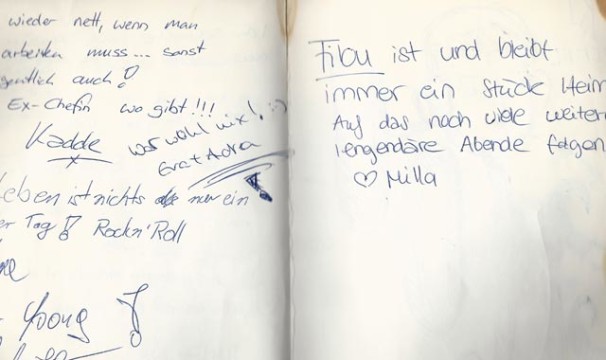 wieder nett, wenn man
arbeiten muss... sonst
gentlich auch!
Ex-Chefin wo gibt!!!
Kadde
war wohl nix! :-)
Leben ist nichts als nur ein
er Tag! Rock'n'Roll
Young
Fibu ist und bleibt
immer ein Stück Heim
Auf das noch viele weiter
lengendäre Abende folgen
♡ Milla